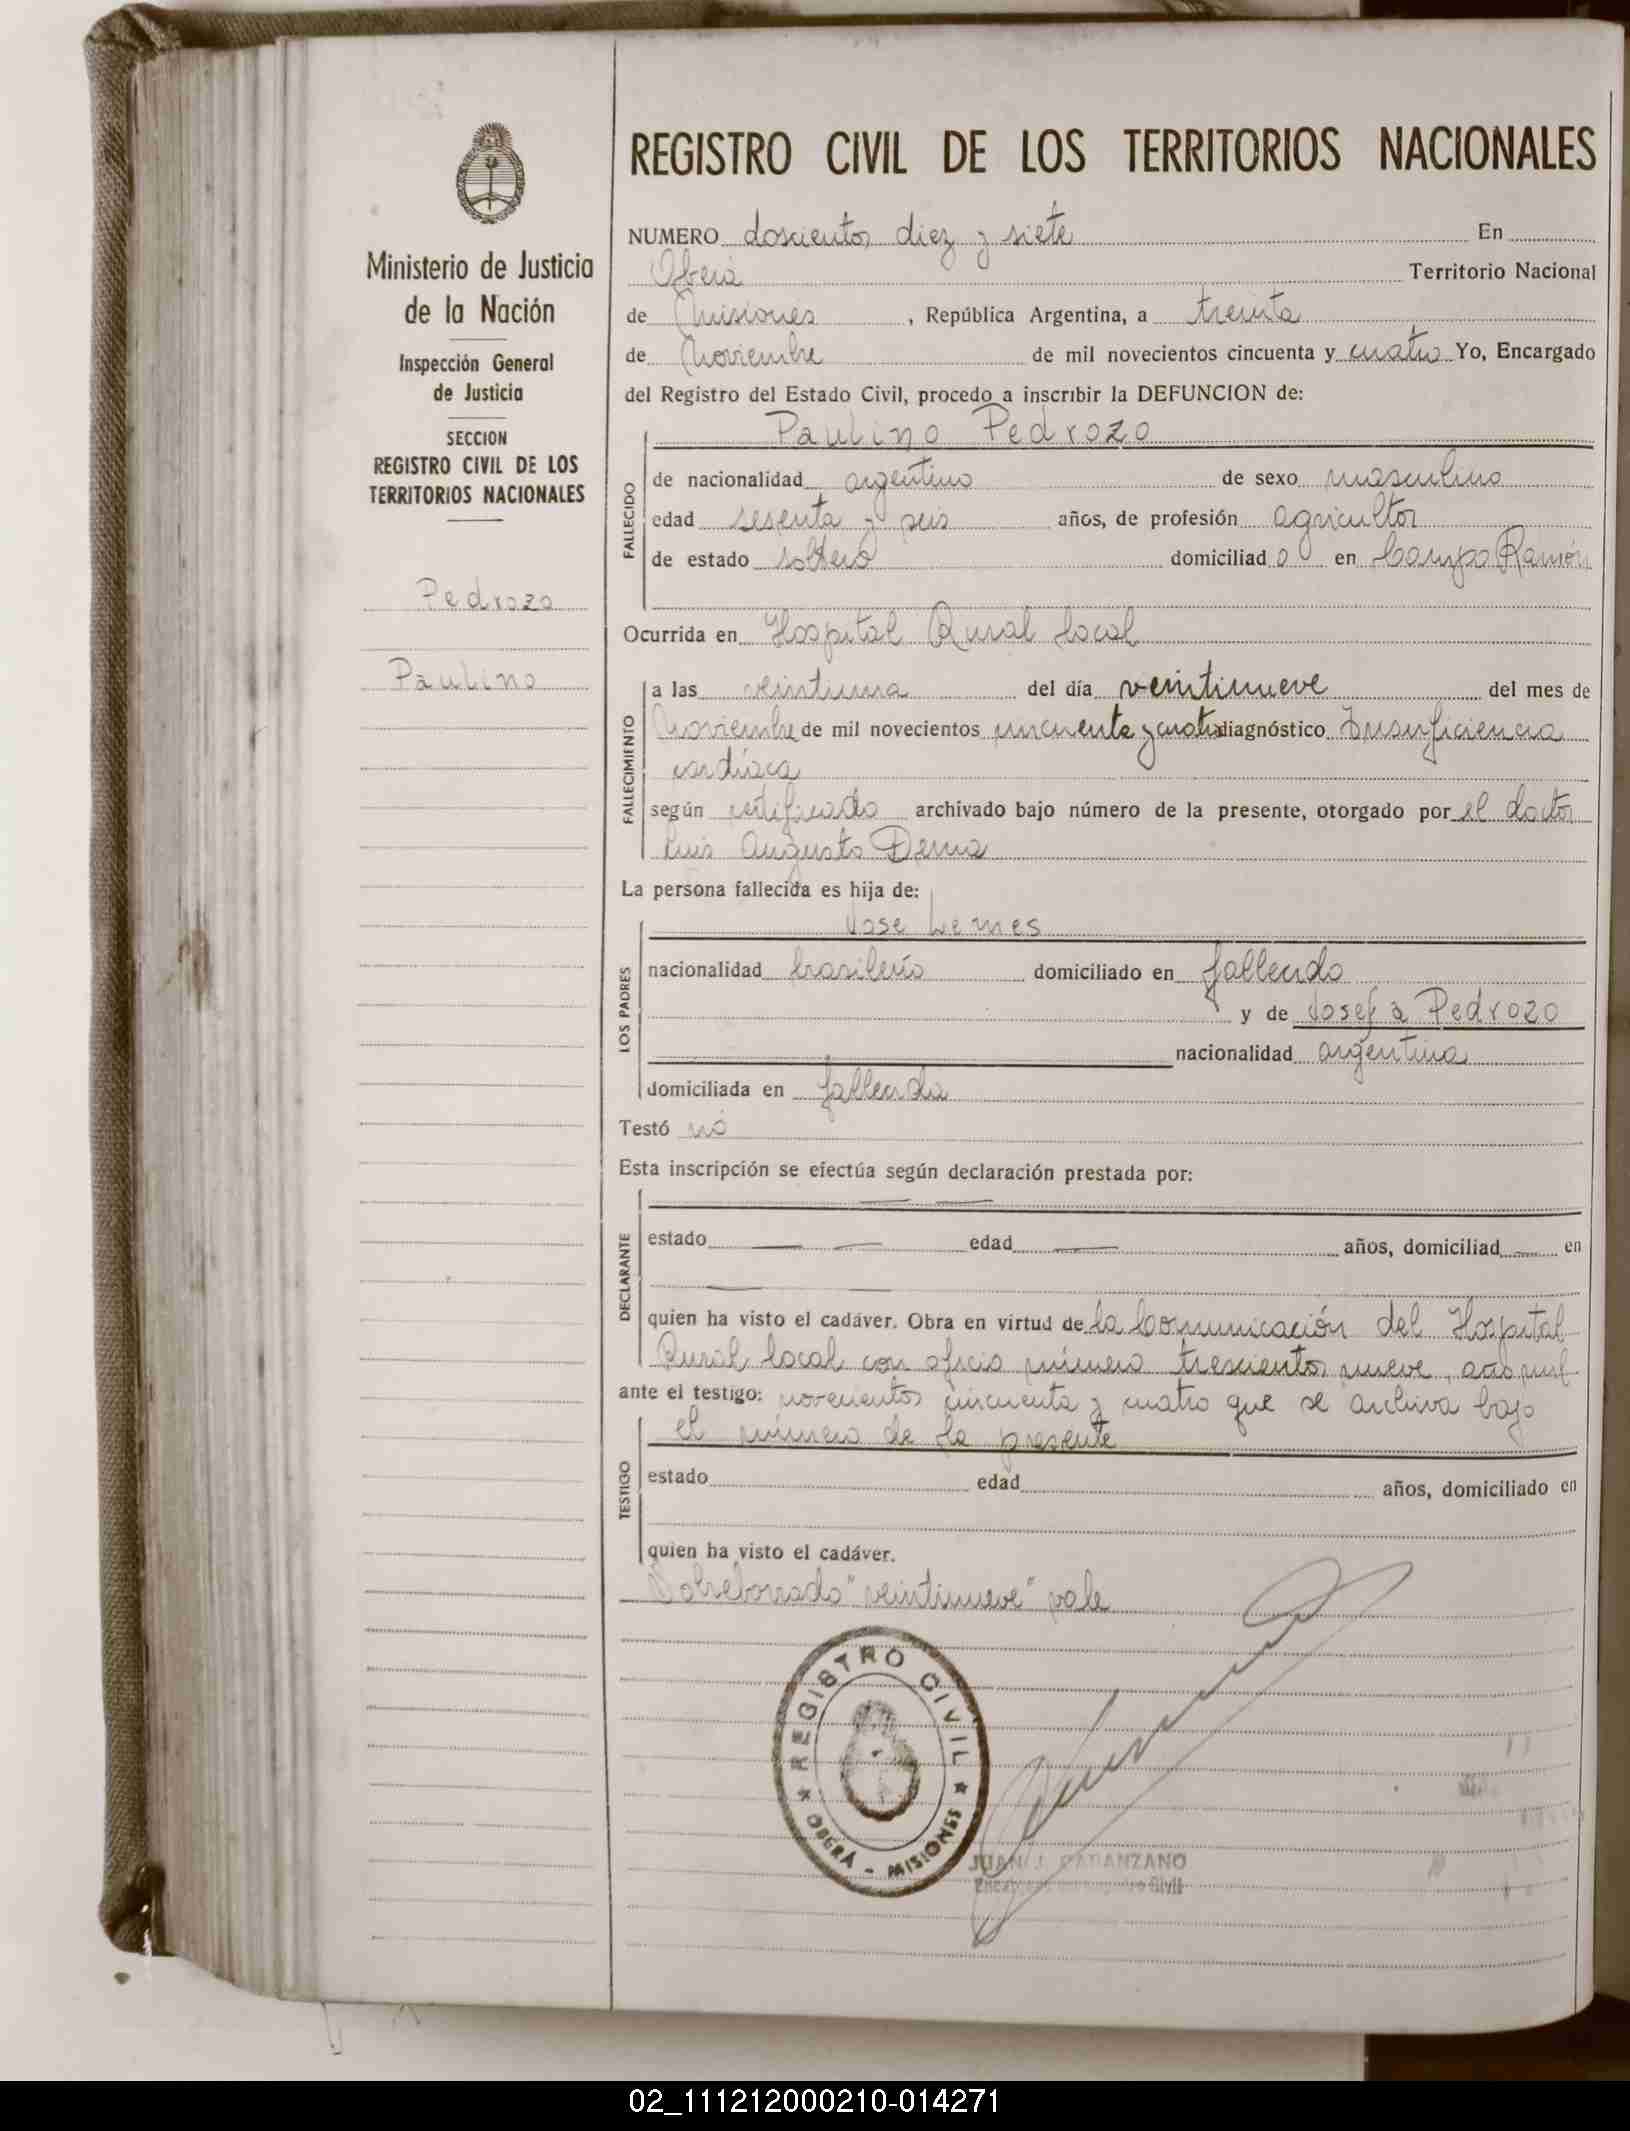 Ministerio de Justicia
de la Nación
Inspección General
de Justicia
SECCION
REGISTRO CIVIL DE LOS
TERRITORIOS NACIONALES
Pedrozo
Paulino
REGISTRO CIVIL DE LOS TERRITORIOS NACIONALES
NUMERO doscientos diez y siete En
Oberá Territorio Nacional
de Misiones, República Argentina, a treinta
de Noviembre de mil novecientos cincuenta y cuatro Yo, Encargado
del Registro del Estado Civil, procedo a inscribir la DEFUNCION de:
Paulino Pedrozo
FALLECIDO
de nacionalidad argentino de sexo masculino
edad sesenta y seis años, de profesión agricultor
de estado soltero domiciliado en Campo Ramón
Ocurrida en Hospital Rural local
FALLECIMIENTO
a las veintiuna del día veintinueve del mes de
Noviembre de mil novecientos cincuenta y cuatro diagnóstico Insuficiencia
cardíaca
según certificado archivado bajo número de la presente, otorgado por el doctor
Luis Augusto Derna
La persona fallecida es hija de:
Jose Lemes
LOS PADRES
nacionalidad brasileño domiciliado en fallecido
y de Josefa Pedrozo
nacionalidad argentina
domiciliada en fallecida
Testó nó
Esta inscripción se efectúa según declaración prestada por:
DECLARANTE
estado edad años, domiciliad en
quien ha visto el cadáver. Obra en virtud de la Comunicación del Hospital
Rural local con oficio número trescientos nueve, año mil
ante el testigo: novecientos cincuenta y cuatro que se archiva bajo
el número de la presente
TESTIGO
estado edad años, domiciliado en
quien ha visto el cadáver.
Sobreborrado "veintinueve" vale
REGISTRO CIVIL
OBERÁ - MISIONES
JUAN J. GARANZANO
Encargado del Registro Civil
02_111212000210-014271